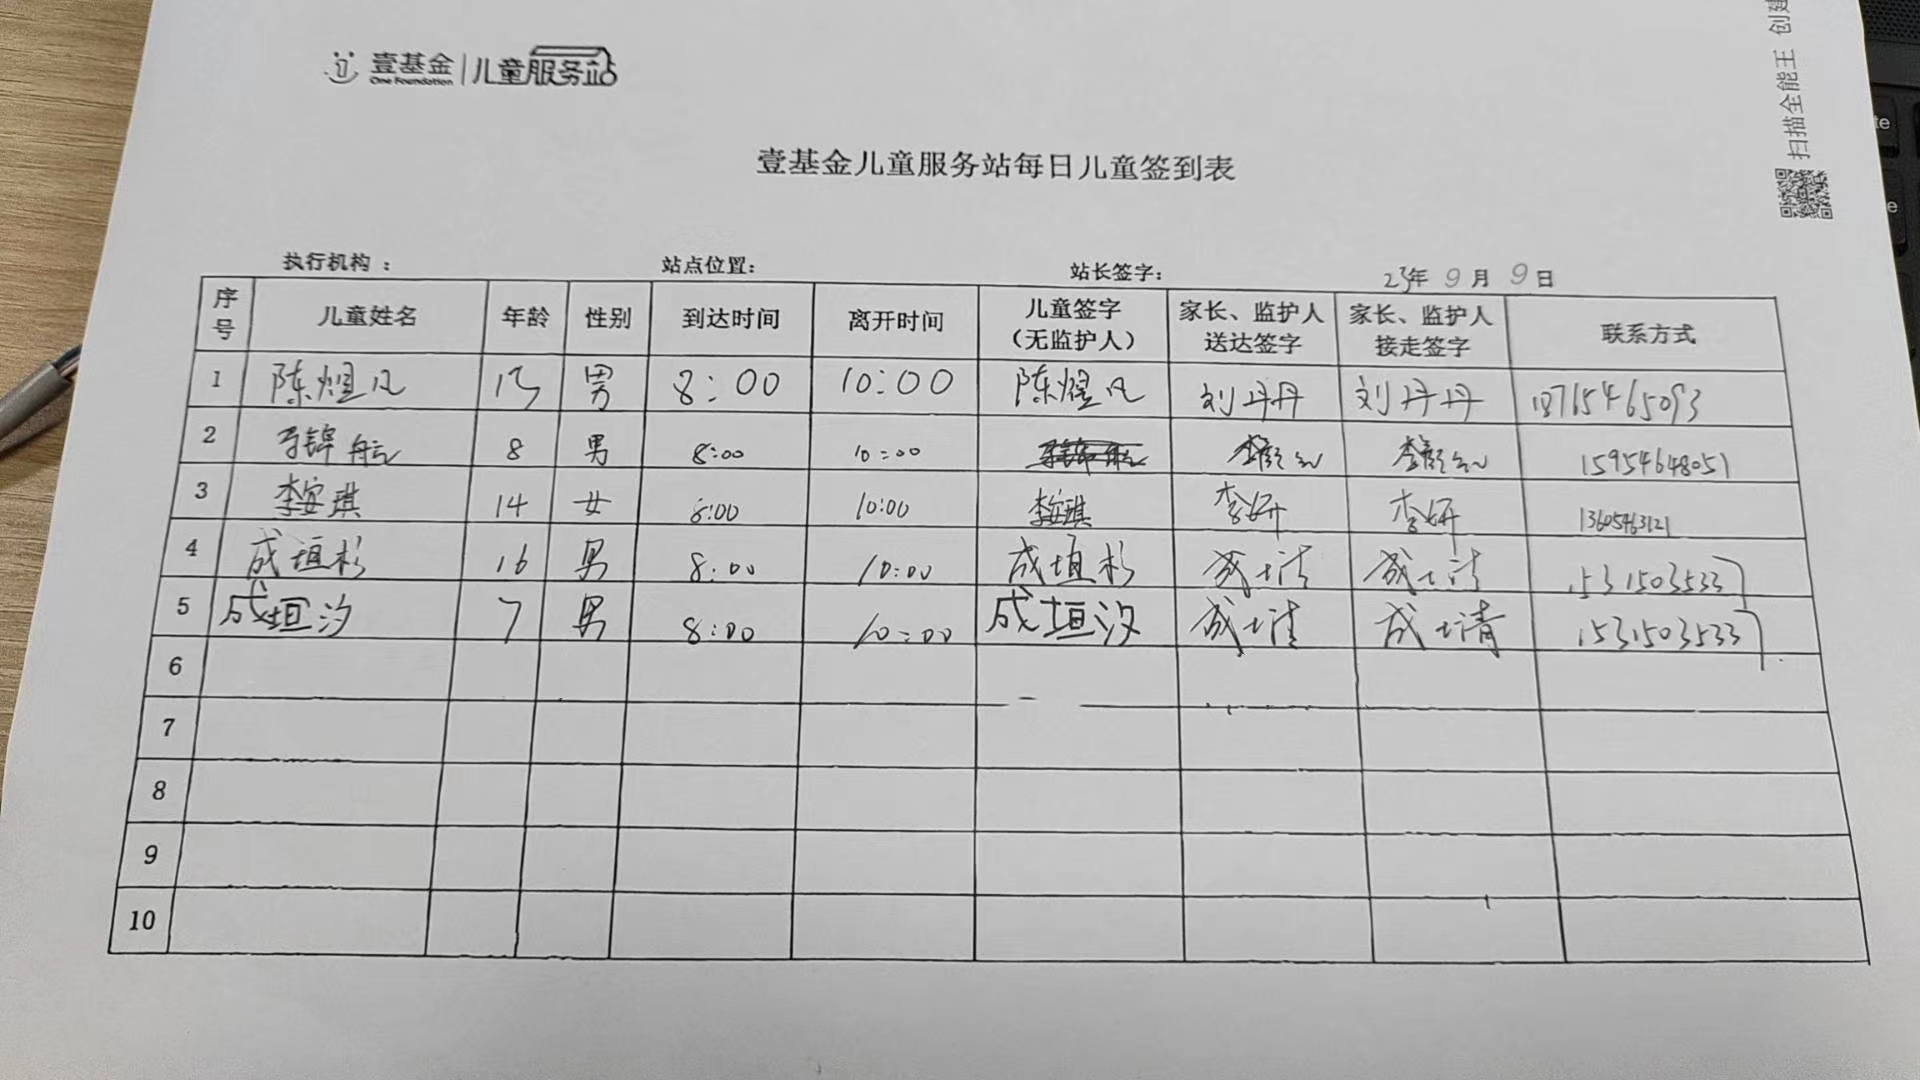 壹基金 | 儿童服务站
One Foundation
扫描全能王 创建
壹基金儿童服务站每日儿童签到表
执行机构： 站点位置： 站长签字： 23年 9 月 9 日
序号 儿童姓名 年龄 性别 到达时间 离开时间 儿童签字（无监护人） 家长、监护人送达签字 家长、监护人接走签字 联系方式
1 陈煜凡 13 男 8:00 10:00 陈煜凡 刘丹丹 刘丹丹 18765465093
2 锦航 8 男 8:00 10:00 15954648051
3 李安琪 14 女 8:00 10:00 李安琪 李妍 李妍 13605463121
4 成垣杉 16 男 8:00 10:00 成垣杉 成 成 15315035337
5 成垣汐 7 男 8:00 10:00 成垣汐 成 成 15315035337
6
7
8
9
10